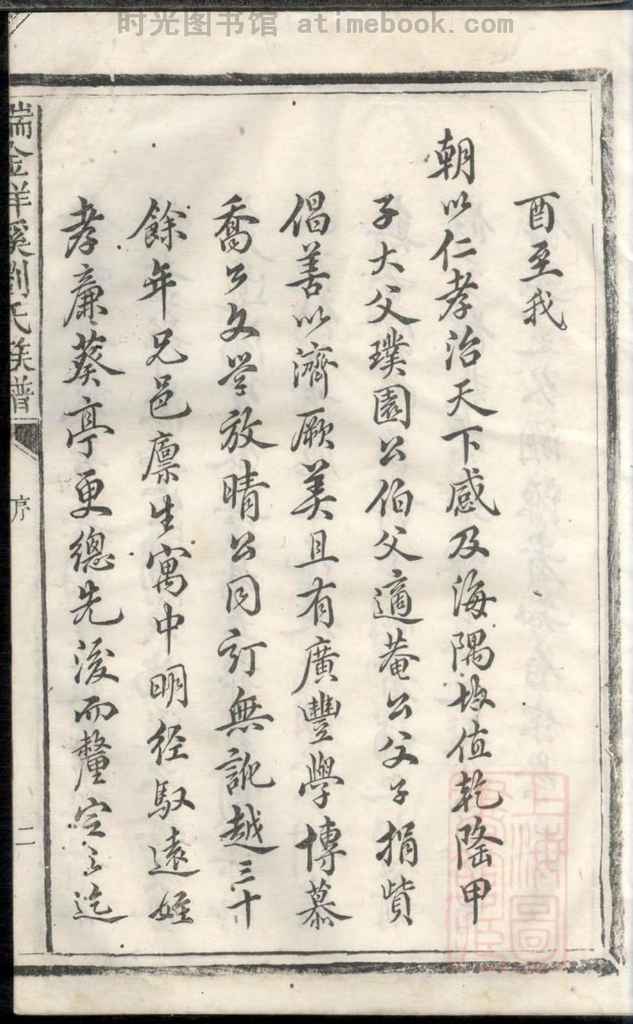 时光图书馆 atimebook.com
酉至我
朝以仁孝治天下感及海隅均值乾隆甲
子大父璞園公伯父適菴公父子捐貲
倡善以濟厥美且有廣豐學博慕
喬公文学放晴公同訂無訛越三十
餘年兄邑廪生寓中明经馭遠姪
孝廉葵亭更總先後而釐定之迄
瑞金祥溪劉氏族譜
序
二